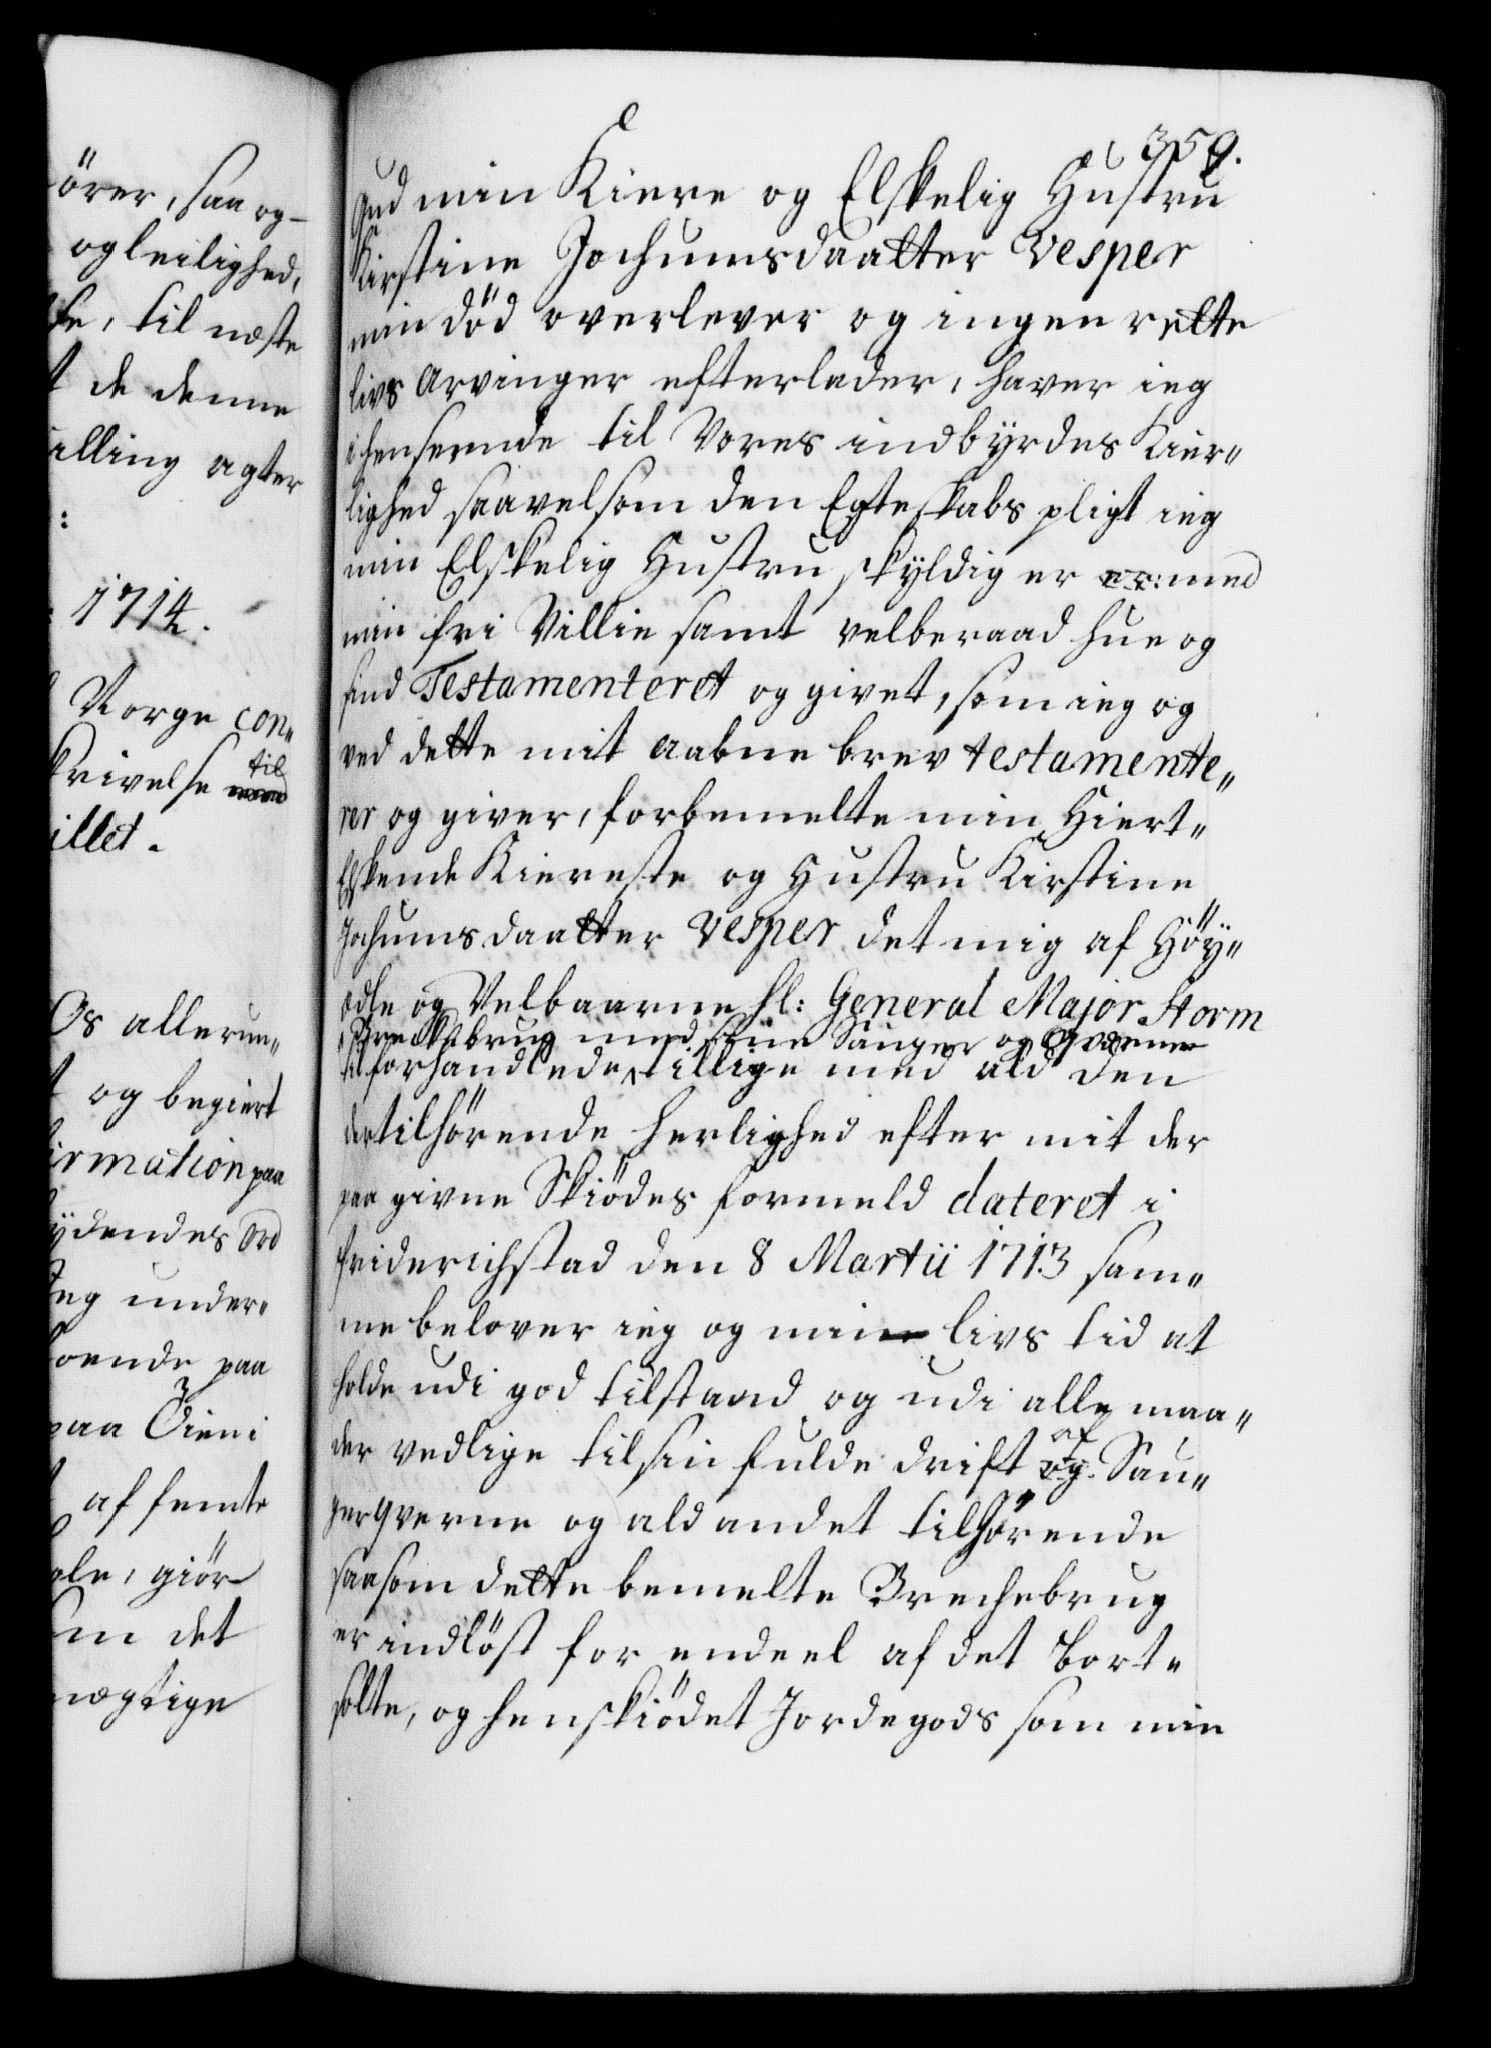 örer, saa og-
og leilighed,
se, til neste
t de denne
illing agter
:
1714.
Norge con„
skrivelse til
illet.
Os allerun„
t og begiert
irmation paa
lÿdendes ord
Jeg under„
boende paa
paa Öien i
t af femte
gle, giör
om det
mægtige
359.
Gud min Kiere og Elskelig Hustru
Kirstine Jochumsdaatter Vesper
min död overlever og ingen rette
livs Arvinger efterlader, haver ieg
i henseende til Vores indbÿrdes Kier„
lighed saavelsom den Egteskabs pligt ieg
min Elskelig Hustru skÿldig er er: med
min frie Villie samt velberaad hue og
sind Testamenteret og givet, som ieg og
ved dette mit aabne brev testamente„
rer og giver, forbemelte min Hiert„
Elskende Kiereste og Hustru Kirstine
Jochumsdaatter Vesper det mig af Höÿ„
ædle og Velbaarne hl: General Major Storm
Brechebrug med sine Sauger og Qverne
tilforhandlede, tillige med ald den
dertilhörende herlighed efter mit der
paa givne Skiödes formeld dateret i
friderichstad den 8 Martii 1713 sam„
me belover ieg og min livs tid at
holde udi god tilstand og udi alle maa„
der vedlige til sin fulde drift af og Sau„
ger qverne og ald andet tilhörende
saasom dette bemelte Brechebrug
er indlöst for endeel af det bort„
solte, og henskiödet Jordegods som min